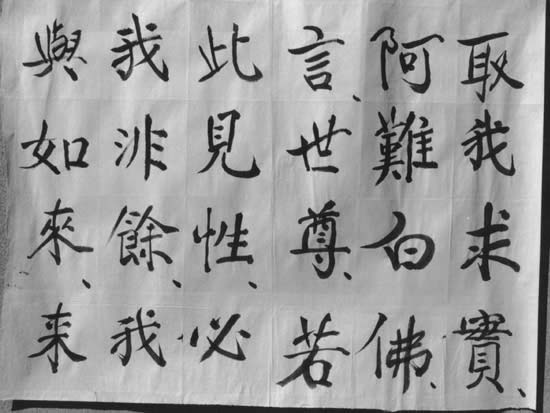 取我求實、
阿難白佛、
言、世尊、若
此見性、必
我非餘、我
與、如來、来